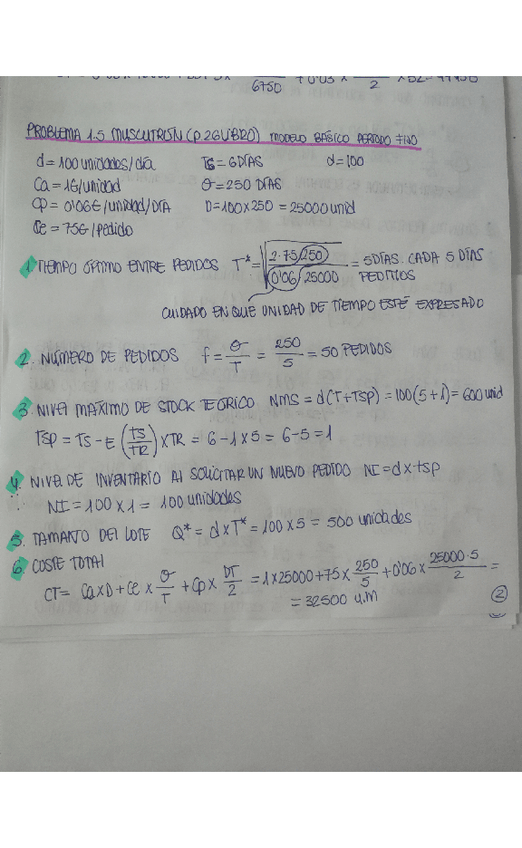 6750 + 0'03 × 2
PROBLEMA 1.5 MUSCUTRISN (P.26 LIBRO) MODELO BÁSICO PERIODO FIJO
d = 100 unidades/día Ts = 6 DÍAS d = 100
Ca = 1€/unidad θ = 250 DÍAS
Cp = 0'06€/unidad/DÍA D = 100 × 250 = 25000 unid
Ce = 75€/pedido
1. TIEMPO ÓPTIMO ENTRE PEDIDOS T* = √(2·75·250 / 0'06·25000) = 5 DÍAS. CADA 5 DÍAS PEDIMOS
CUIDADO EN QUÉ UNIDAD DE TIEMPO ESTÉ EXPRESADO
2. NÚMERO DE PEDIDOS f = θ/T = 250/5 = 50 PEDIDOS
3. NIVEL MÁXIMO DE STOCK TEÓRICO NMS = d(T+TSP) = 100(5+1) = 600 unid
TSP = TS - E (TS/TR) × TR = 6 - 1 × 5 = 6 - 5 = 1
4. NIVEL DE INVENTARIO Al SOLICITAR UN NUEVO PEDIDO NI = d × tsp
NI = 100 × 1 = 100 unidades
5. TAMAÑO DEl LOTE Q* = d × T* = 100 × 5 = 500 unidades
6. COSTE TOTAl
CT = Ca × D + Ce × θ/T + Cp × DT/2 = 1 × 25000 + 75 × 250/5 + 0'06 × 25000·5/2 =
= 32500 u.m
2